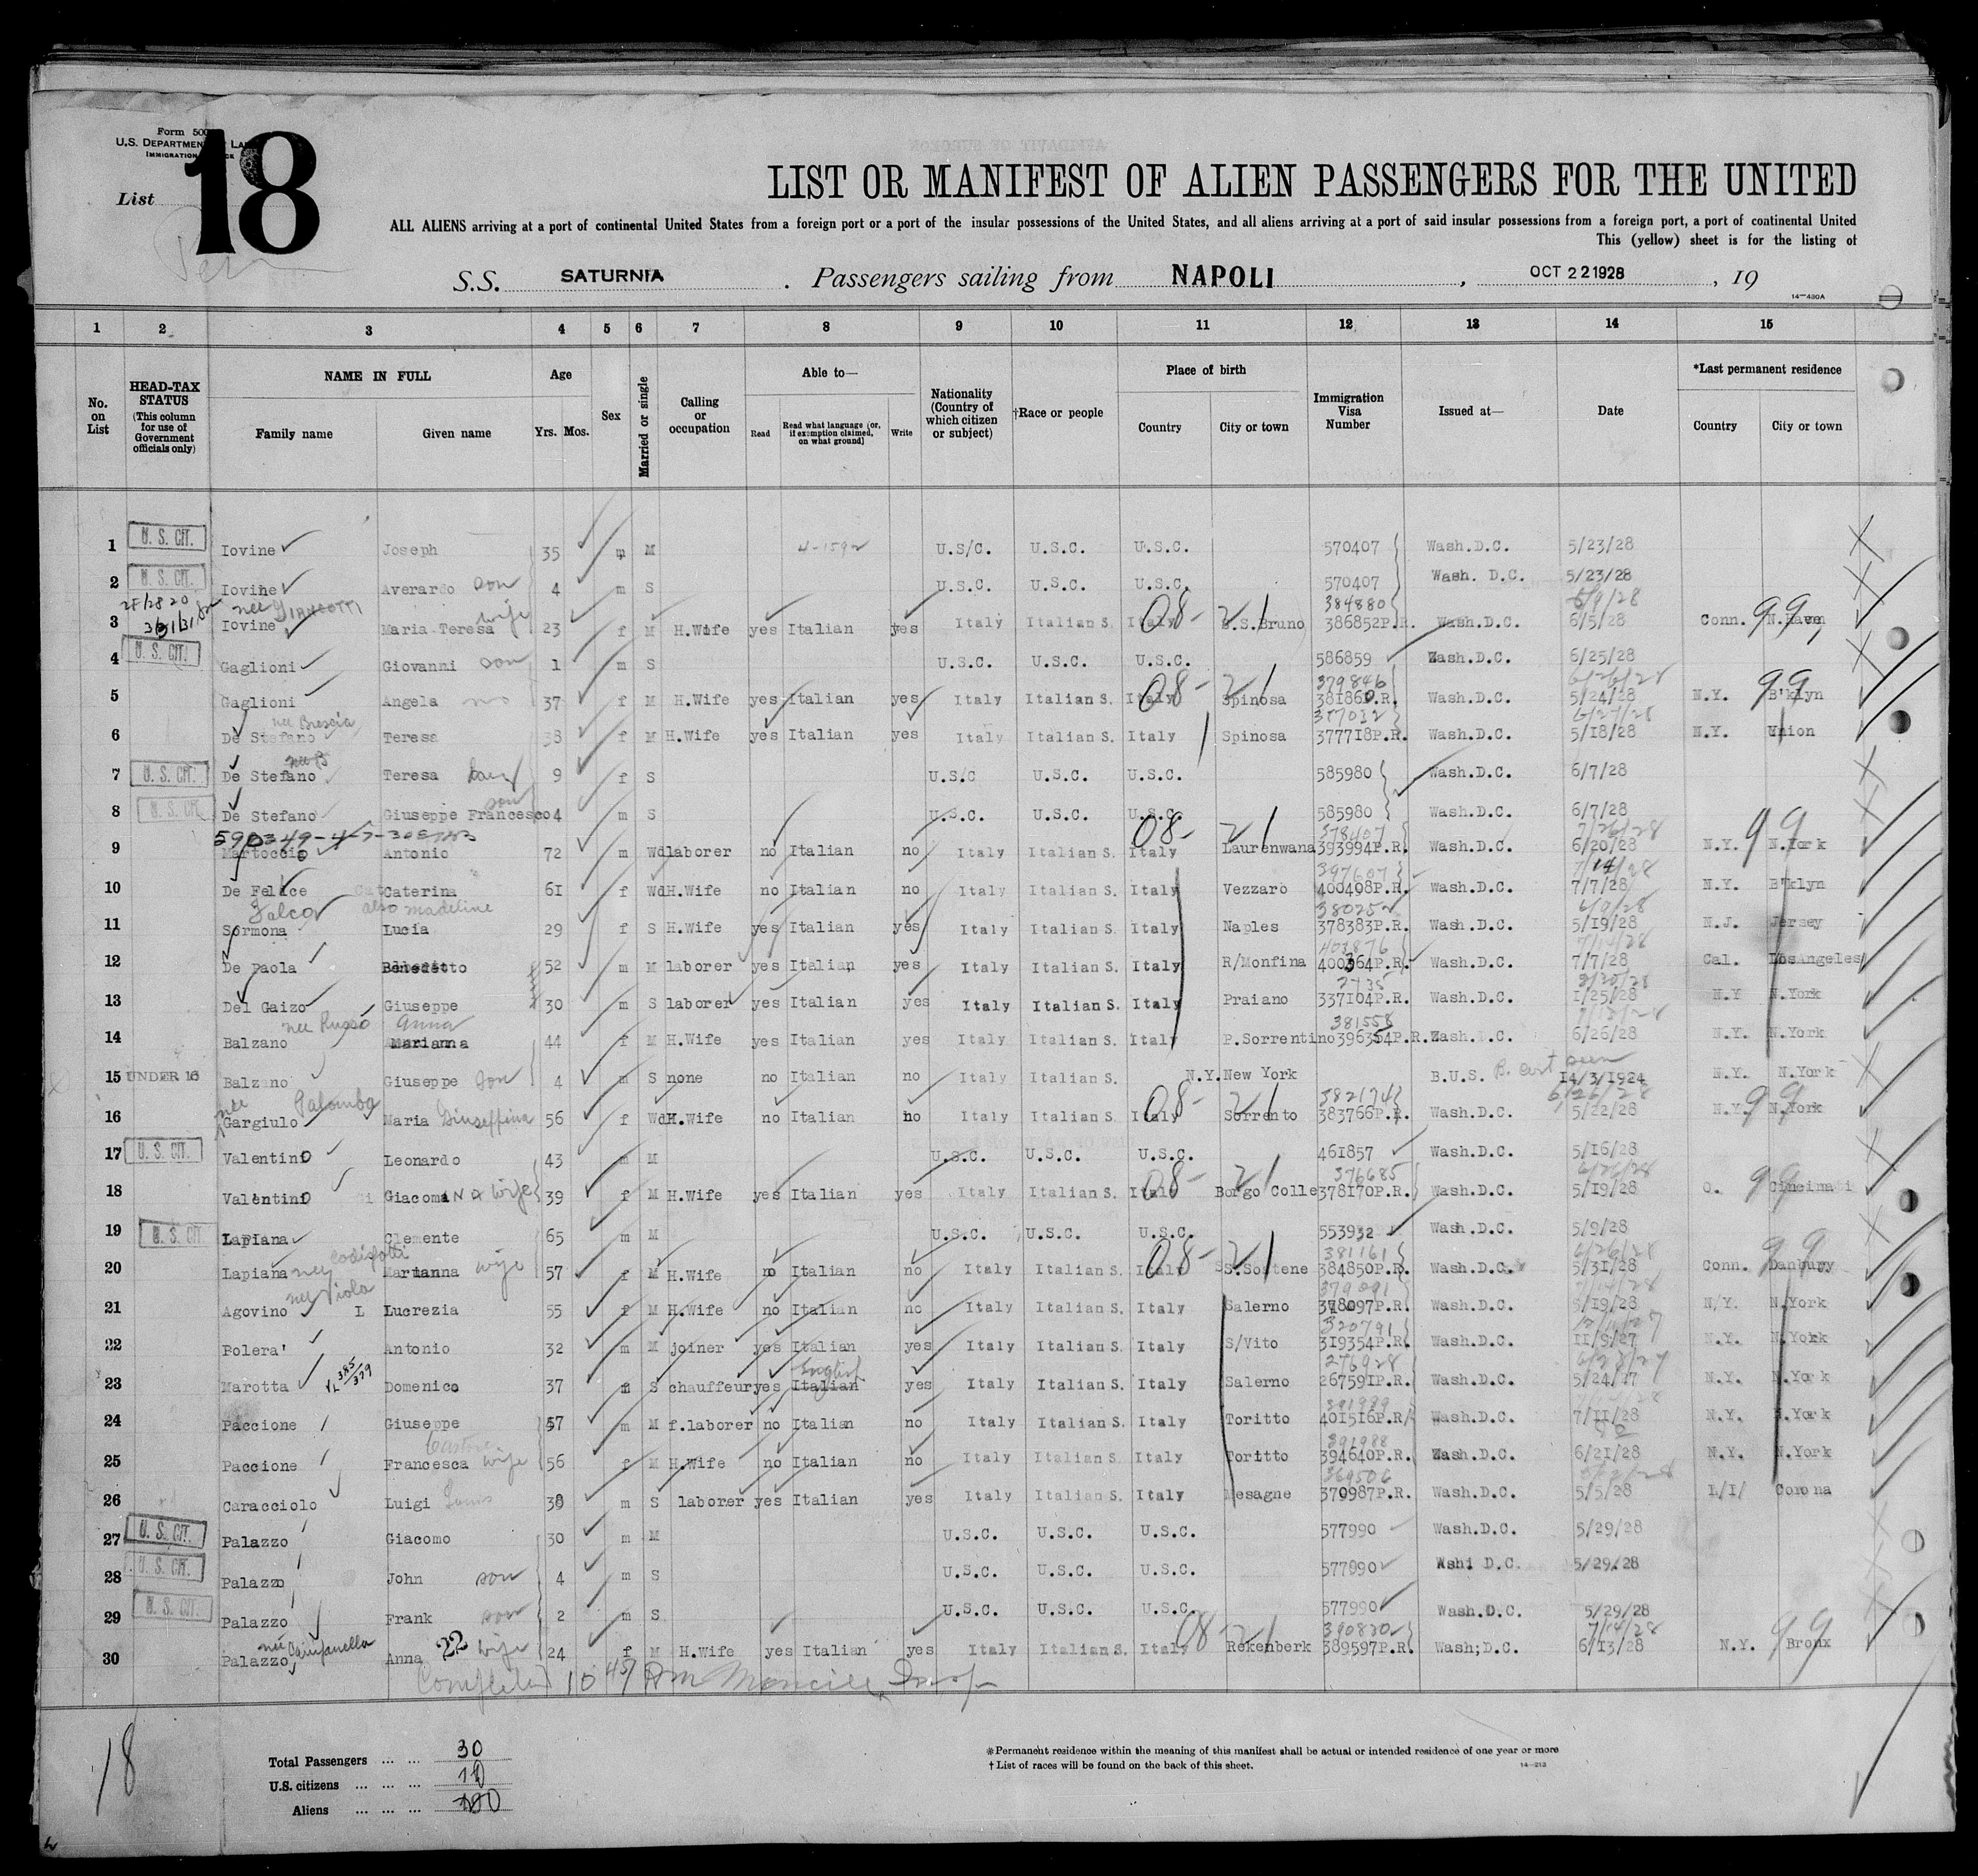 Form 500
U.S. DEPARTMENT
IMMIGRATION
List 18
LIST OR MANIFEST OF ALIEN PASSENGERS FOR THE UNITED
ALL ALIENS arriving at a port of continental United States from a foreign port or a port of the insular possessions of the United States, and all aliens arriving at a port of said insular possessions from a foreign port, a port of continental United
This (yellow) sheet is for the listing of
S.S. SATURNIA . Passengers sailing from NAPOLI , OCT 22 1928 , 19
14-430A
1 2 3 4 5 6 7 8 9 10 11 12 13 14 15
No. on List HEAD-TAX STATUS (This column for use of Government officials only) NAME IN FULL Family name Given name Age Yrs. Mos. Sex Married or single Calling or occupation Able to— Read Read what language (or, if exemption claimed, on what ground) Write Nationality (Country of which citizen or subject) †Race or people Place of birth Country City or town Immigration Visa Number Issued at— Date *Last permanent residence Country City or town
1 U. S. CIT. Iovine Joseph 35 m M 4-1592 U.S/C. U.S.C. U.S.C. 570407 Wash.D.C. 5/23/28
2 U. S. CIT. Iovine Averardo son 4 m S U.S.C. U.S.C. U.S.C. 570407 Wash. D.C. 5/23/28
nee wife 384880
3 Iovine Maria Teresa 23 f M H.Wife yes Italian yes Italy Italian S. Italy 08- 21 S.S.Bruno 386852P.R. Wash.D.C. 6/5/28 Conn. 99 N.Haven
4 U. S. CIT. Gaglioni Giovanni son 1 m S U.S.C. U.S.C. U.S.C. 586859 Wash.D.C. 6/25/28
379846 6/26/28
5 Gaglioni Angela mo 37 f M H.Wife yes Italian yes Italy Italian S. Italy 08- 21 Spinosa 381860.R. Wash.D.C. 5/24/28 N.Y. 99 B'klyn
nee Brescia 377032 6/27/28
6 De Stefano Teresa 38 f M H.Wife yes Italian yes Italy Italian S. Italy Spinosa 377718P.R. Wash.D.C. 5/18/28 N.Y. Union
7 U. S. CIT. De Stefano Teresa 9 f S U.S.C U.S.C. U.S.C. 585980 Wash.D.C. 6/7/28
son
8 U. S. CIT. De Stefano Giuseppe Francesco 4 m S U.S.C. U.S.C. U.S.C. 585980 Wash.D.C. 6/7/28
378407 7/26/28
9 Martoccio Antonio 72 m Wd laborer no Italian no Italy Italian S. Italy 08- 21 Laurenwana 393994P.R. Wash.D.C. 6/20/28 N.Y. 99 N.York
397607 7/14/28
10 De Felice Caterina 61 f Wd H.Wife no Italian no Italy Italian S. Italy Vezzaro 400498P.R. Wash.D.C. 7/7/28 N.Y. B'klyn
Falco also madeline 380252 6/9/28
11 Sormona Lucia 29 f S H.Wife yes Italian yes Italy Italian S. Italy Naples 378383P.R. Wash.D.C. 5/19/28 N.J. Jersey
403876 7/14/28
12 De Paola Benedetto 52 m M laborer yes Italian yes Italy Italian S. Italy R/Monfina 400364P.R. Wash.D.C. 7/7/28 Cal. LosAngeles
2735
13 Del Gaizo Giuseppe 30 m S laborer yes Italian yes Italy Italian S. Italy Praiano 337104P.R. Wash.D.C. 1/25/28 N.Y N.York
nee Russo Anna 381558
14 Balzano Marianna 44 f M H.Wife yes Italian yes Italy Italian S. Italy P.Sorrentino 396354P.R. Wash.D.C. 6/26/28 N.Y. N.York
15 UNDER 16 Balzano Giuseppe son 4 m S none no Italian no Italy Italian S. N.Y. New York B.U.S. B. Cert seen 14/3/1924 N.Y. N.York
nee Palomba 382174 6/26/28
16 Gargiulo Maria Giuseppina 56 f Wd H.Wife no Italian no Italy Italian S. Italy 08- 21 Sorrento 383766P.R. Wash.D.C. 5/22/28 N.Y. 99 N.York
17 U. S. CIT. Valentino Leonardo 43 m M U.S.C. U.S.C. U.S.C. 461857 Wash.D.C. 5/16/28
376685 6/26/28
18 Valentino Giacomina wife 39 f M H.Wife yes Italian yes Italy Italian S. Italy 08- 21 Borgo Colle 378170P.R. Wash.D.C. 5/19/28 O. 99 Cincinati
19 U. S. CIT Lapiana Clemente 65 m M U.S.C. U.S.C. U.S.C. 553932 Wash.D.C. 5/9/28
381161 6/26/28
20 Lapiana nee Marianna wife 57 f M H.Wife no Italian no Italy Italian S. Italy 08- 21 S.Sostene 384850P.R. Wash.D.C. 5/31/28 Conn. 99 Danbury
nee Viola 379091 7/14/28
21 Agovino L Lucrezia 55 f M H.Wife no Italian no Italy Italian S. Italy Salerno 378097P.R. Wash.D.C. 5/19/28 N/Y. N.York
320791
22 Polera' Antonio 32 m M joiner yes Italian yes Italy Italian S. Italy S/Vito 319354P.R. Wash.D.C. 11/9/27 N.Y. N.York
English 276928
23 Marotta Domenico 37 m S chauffeur yes Italian yes Italy Italian S. Italy Salerno 267591P.R. Wash.D.C. 5/24/27 N.Y. N.York
24 Paccione Giuseppe 57 m M f.laborer no Italian no Italy Italian S. Italy Toritto 401516P.R/ Wash.D.C. 7/11/28 N.Y. N.York
391988
25 Paccione Francesca wife 56 f M H.Wife no Italian no Italy Italian S. Italy Toritto 394640P.R. Wash.D.C. 6/21/28 N.Y. N.York
369506
26 Caracciolo Luigi 38 m S laborer yes Italian yes Italy Italian S. Italy Mesagne 370987P.R. Wash.D.C. 5/5/28 L/I/ Corona
27 U. S. CIT. Palazzo Giacomo 30 m M U.S.C. U.S.C. U.S.C. 577990 Wash.D.C. 5/29/28
28 U. S. CIT. Palazzo John son 4 m S U.S.C. U.S.C. U.S.C. 577990 Wshi D.C. 5/29/28
29 U. S. CIT. Palazzo Frank son 2 m S U.S.C. U.S.C. U.S.C. 577990 Wash.D.C. 5/29/28
nee Campanella 390830 7/14/28
30 Palazzo Anna 22 wife 24 f M H.Wife yes Italian yes Italy Italian S. Italy 08- 21 Rekenberk 389597P.R. Wash;D.C. 6/13/28 N.Y. 99 Bronx
Completed 10 45 AM
18
Total Passengers ... ... 30
U.S. citizens ... ... ... 10
Aliens ... ... ...
*Permanent residence within the meaning of this manifest shall be actual or intended residence of one year or more
† List of races will be found on the back of this sheet.
14-213